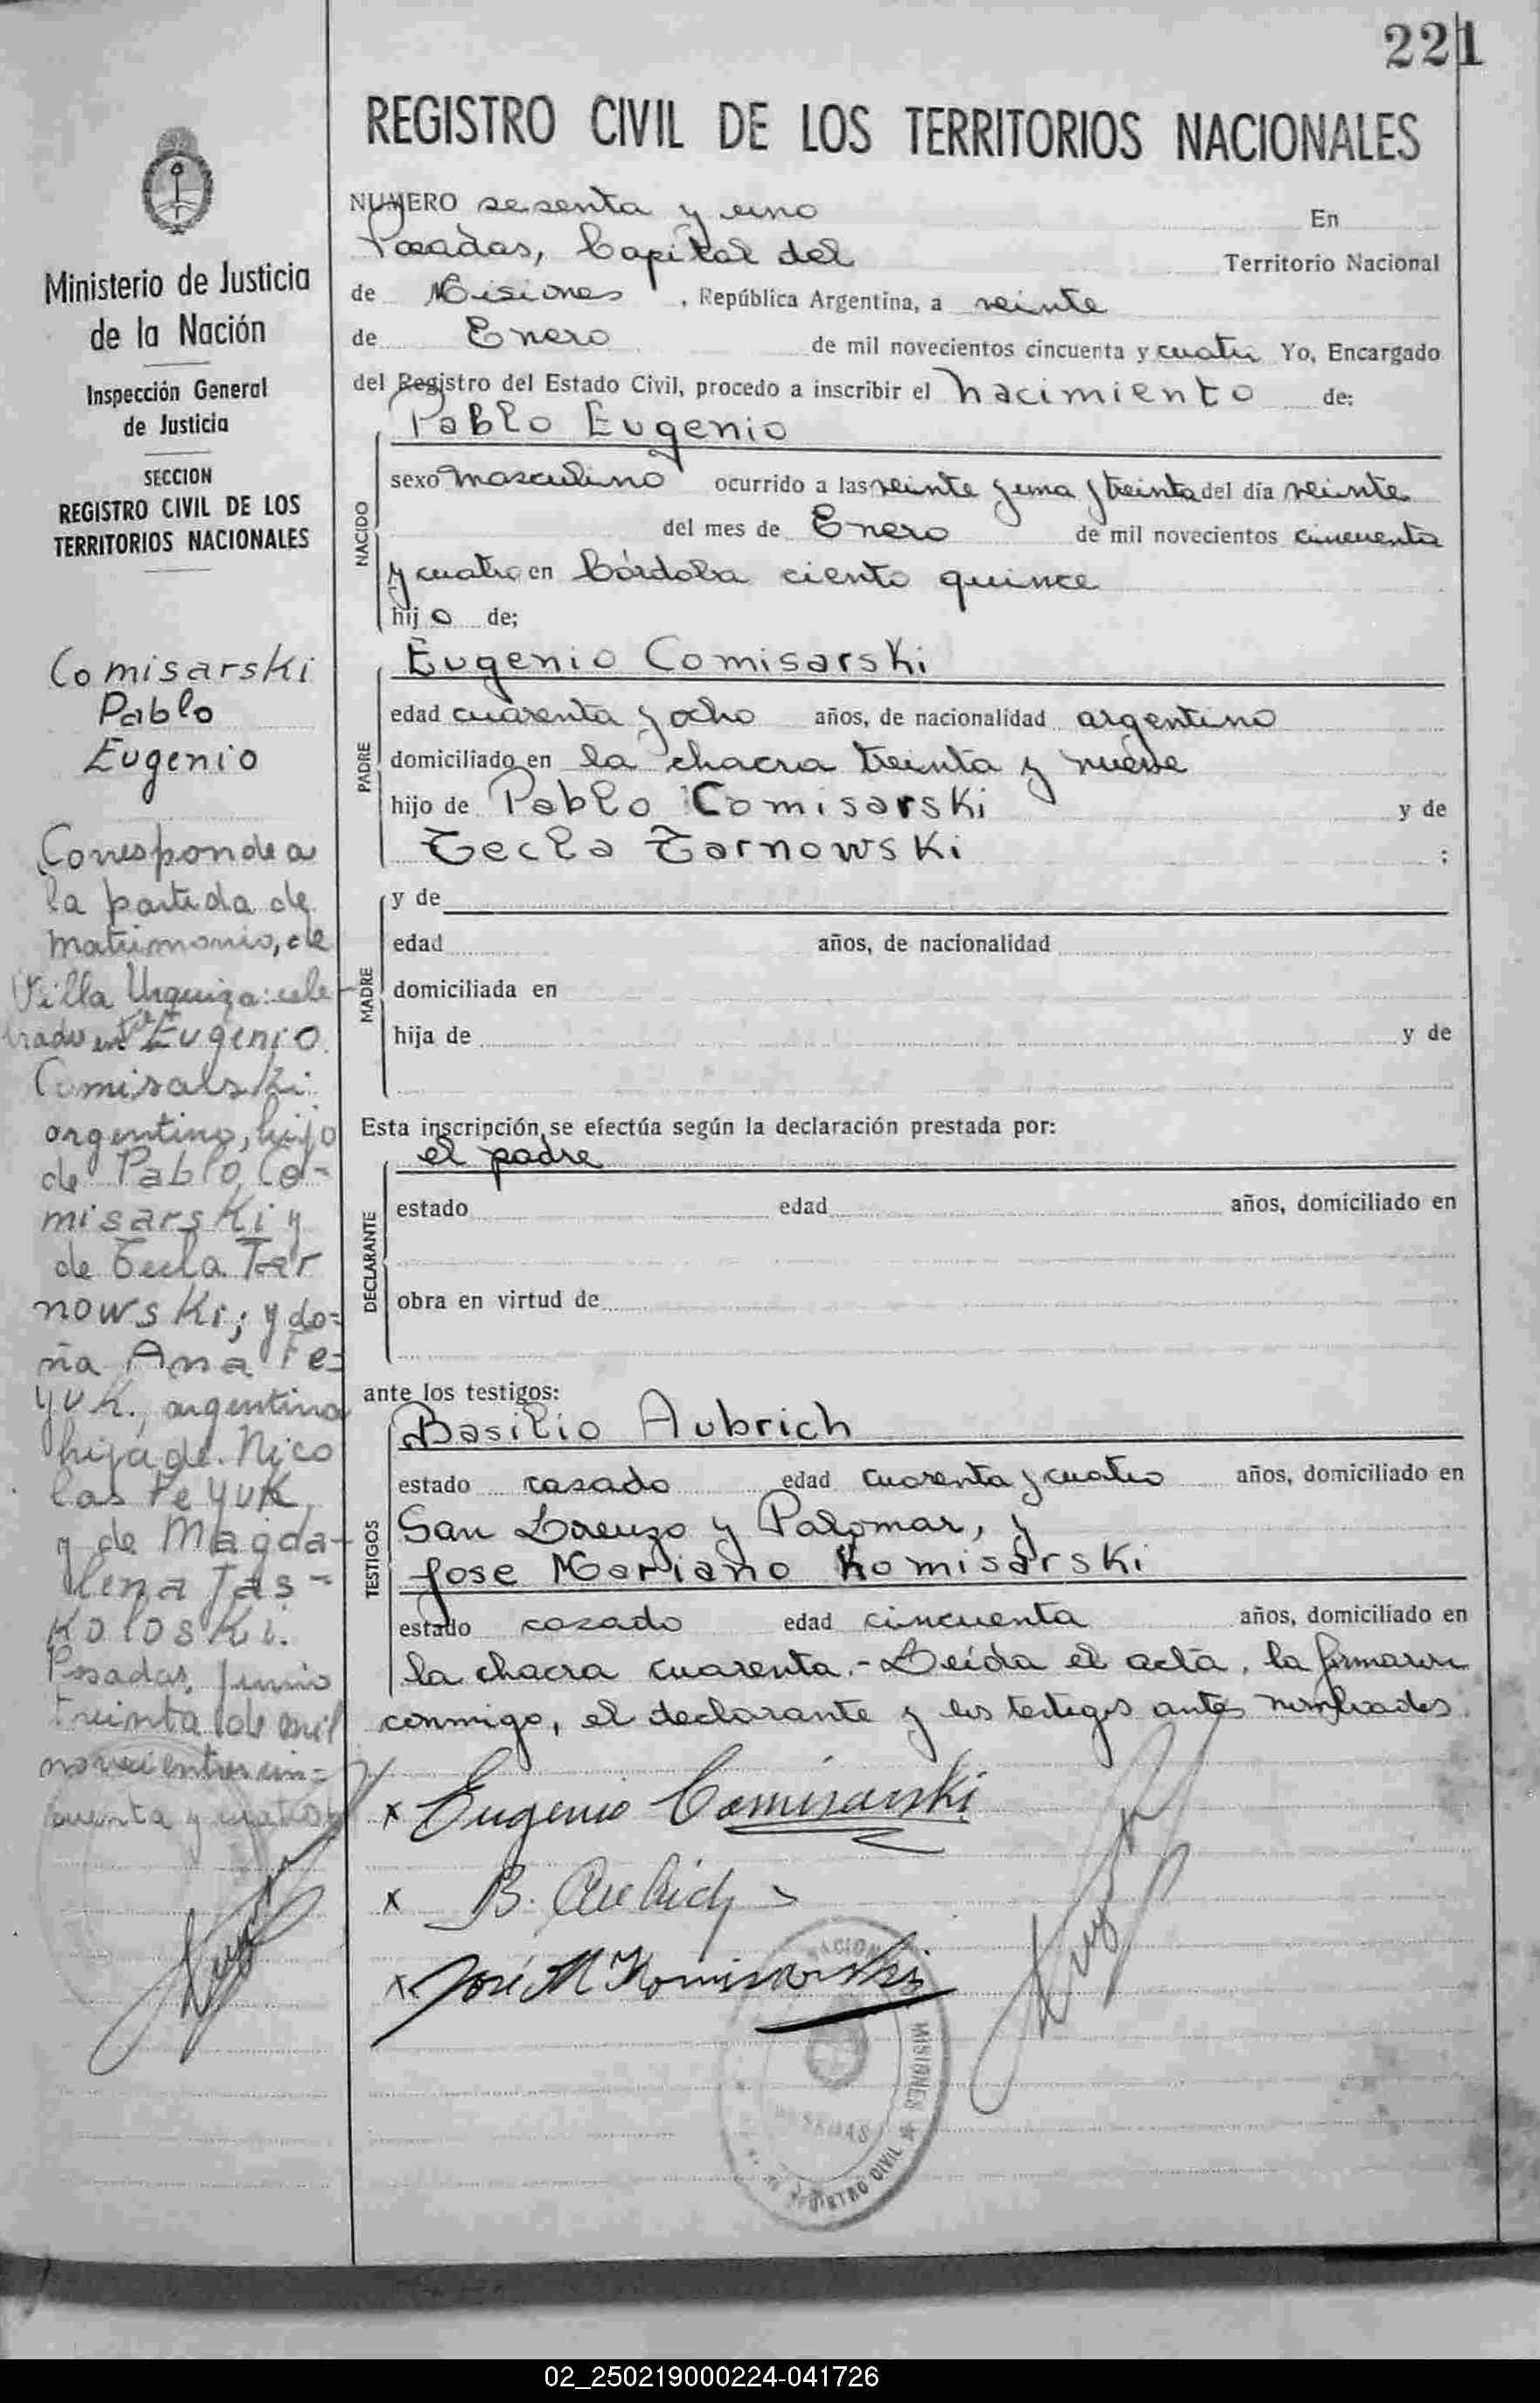 221
REGISTRO CIVIL DE LOS TERRITORIOS NACIONALES
NUMERO sesenta y uno En
Posadas, Capital del Territorio Nacional
de Misiones, República Argentina, a veinte
de Enero de mil novecientos cincuenta y cuatro Yo, Encargado
del Registro del Estado Civil, procedo a inscribir el nacimiento de:
Pablo Eugenio
NACIDO
sexo masculino ocurrido a las veinte y una y treinta del día veinte
del mes de Enero de mil novecientos cincuenta
y cuatro en Córdoba ciento quince
hijo de;
Eugenio Comisarski
PADRE
edad cuarenta y ocho años, de nacionalidad argentino
domiciliado en la chacra treinta y nueve
hijo de Pablo Comisarski y de
Tecla Tarnowski ;
MADRE
y de
edad años, de nacionalidad
domiciliada en
hija de y de
Esta inscripción se efectúa según la declaración prestada por:
el padre
DECLARANTE
estado edad años, domiciliado en
obra en virtud de
ante los testigos:
Basilio Aubrich
TESTIGOS
estado casado edad cuarenta y cuatro años, domiciliado en
San Lorenzo y Palomar, y
Jose Mariano Komisarski
estado casado edad cincuenta años, domiciliado en
la chacra cuarenta.- Leída el acta, la firmaron
conmigo, el declarante y los testigos antes nombrados.
x Eugenio Comisarski
x B. Aubrich
x José M Komisarski
MISIONES
REGISTRO CIVIL
Ministerio de Justicia
de la Nación
Inspección General
de Justicia
SECCION
REGISTRO CIVIL DE LOS
TERRITORIOS NACIONALES
Comisarski
Pablo
Eugenio
Corresponde a
la partida de
matrimonio, de
Villa Urquiza: cele
brado entre Eugenio
Comisalski
argentino, hijo
de Pablo Co-
misarski y
de Tecla Tar
nowski; y do=
ña Ana Pe=
yuk, argentina
hija de Nico
las Peyuk
y de Magda-
lena Jas-
koloski.
Posadas, Junio
treinta de mil
novecientos cin=
cuenta y cuatro
02_250219000224-041726